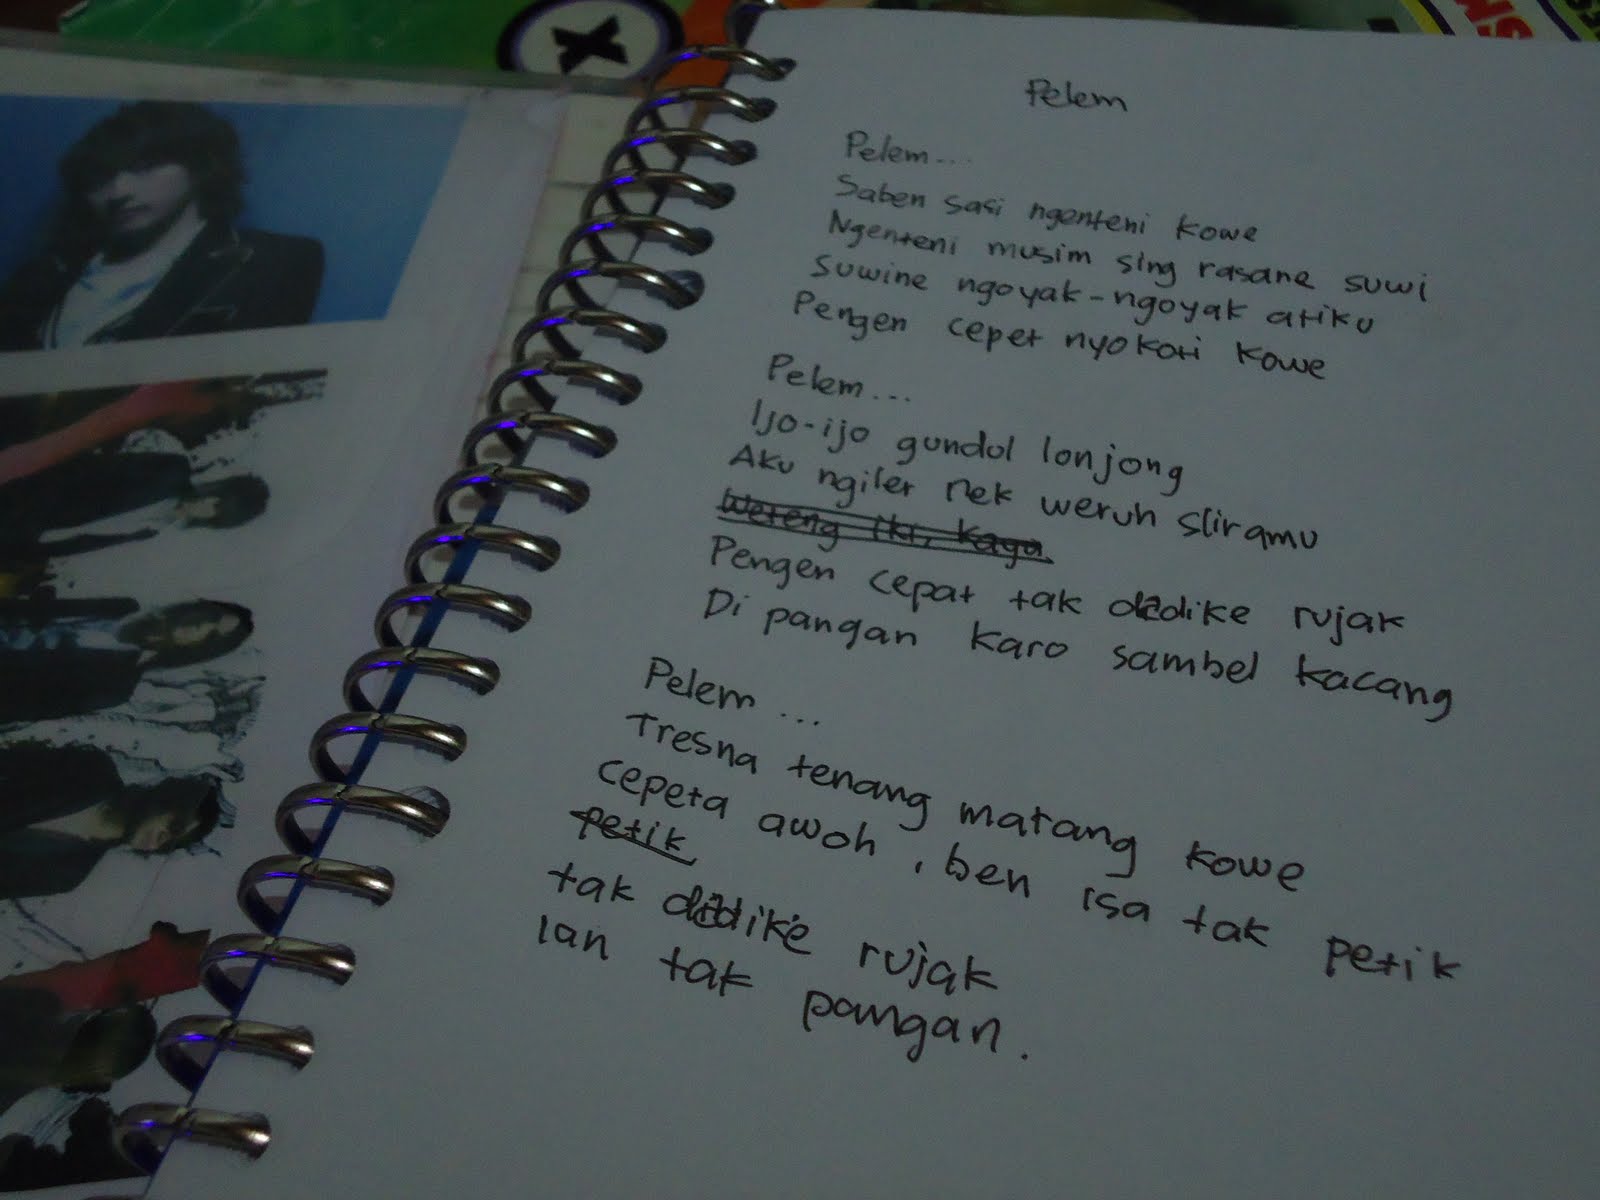 Pelem
Pelem...
Saben sasi ngenteni kowe
Ngenteni musim sing rasane suwi
Suwine ngoyak-ngoyak atiku
Pengen cepet nyokoti kowe
Pelem...
Ijo-ijo gundul lonjong
Aku ngiler nek weruh sliramu
Weteng iki, kaya
Pengen cepat tak dadike rujak
Di pangan karo sambel kacang
Pelem...
Tresna tenang matang kowe
cepeta awoh, ben isa tak petik
petik
tak dadike rujak
lan tak pangan.